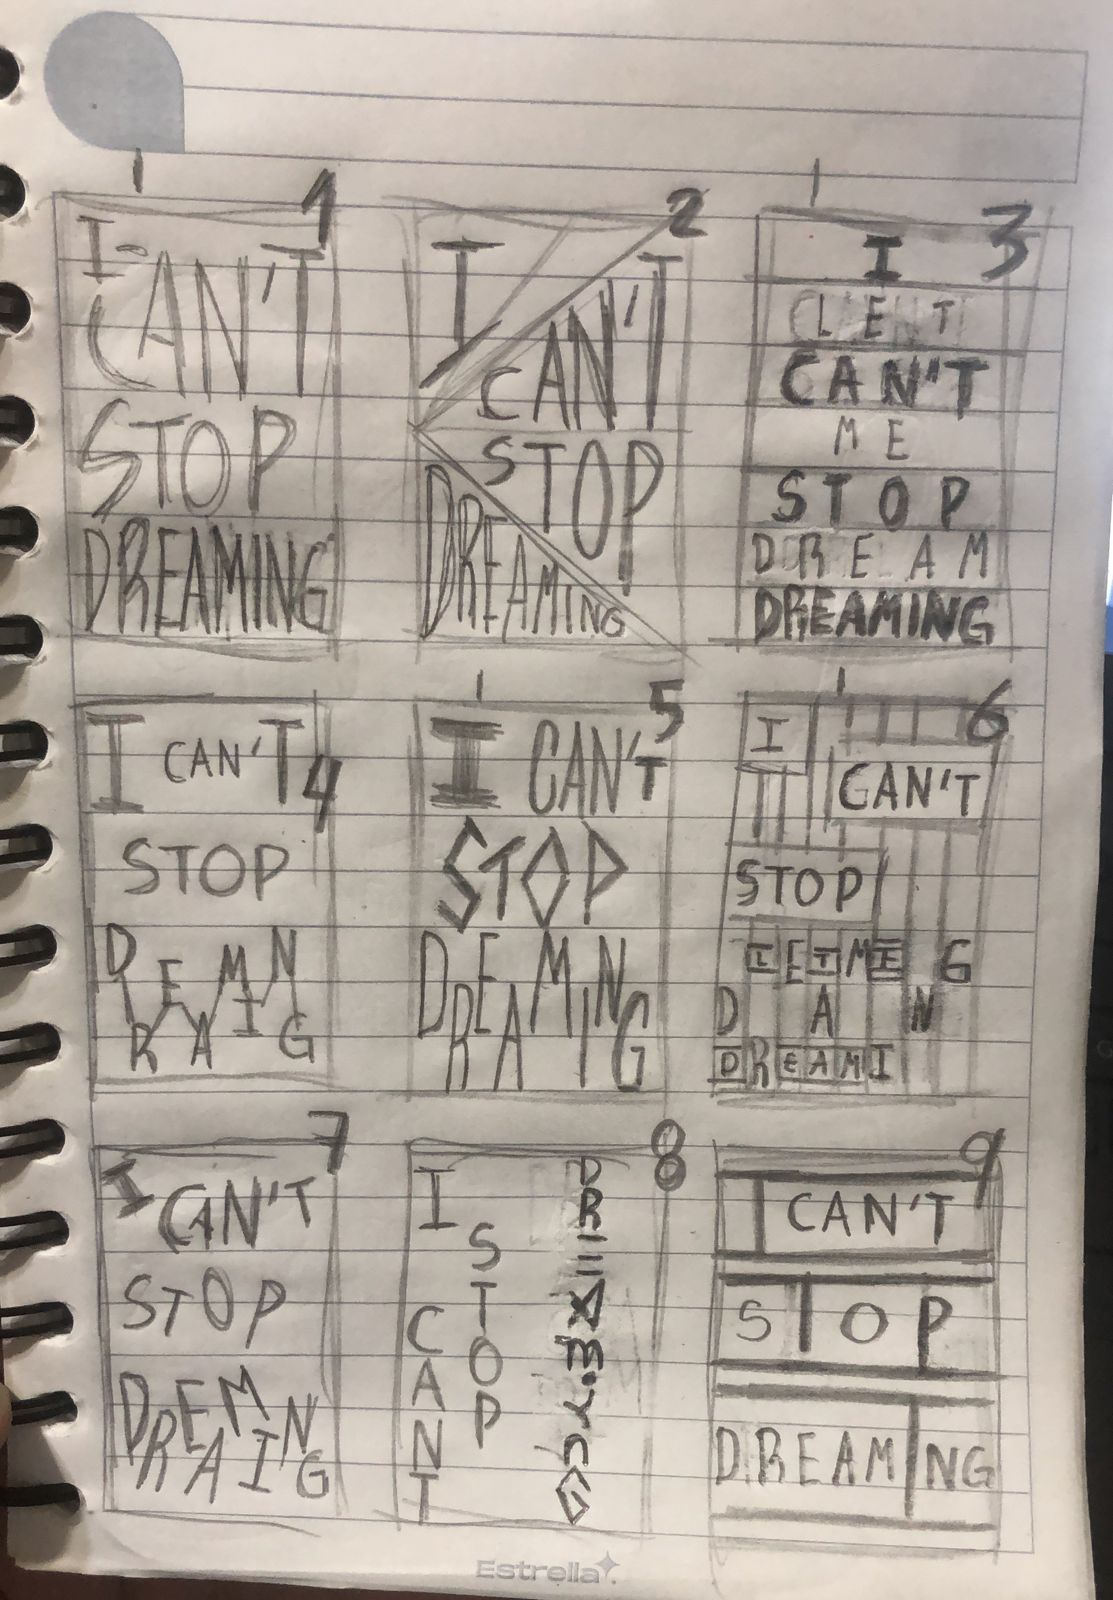 1
I
CAN'T
STOP
DREAMING
2
I
CAN'T
STOP
DREAMING
3
I
LET
CAN'T
ME
STOP
DREAM
DREAMING
4
I CAN'T
STOP
DREAMING
5
I CAN'T
STOP
DREAMING
6
I
CAN'T
STOP
LET ME G
D A N
DREAMI
7
I CAN'T
STOP
DREAMING
8
I
CANT
STOP
DREAMING
9
I CAN'T
STOP
DREAMING
Estrella